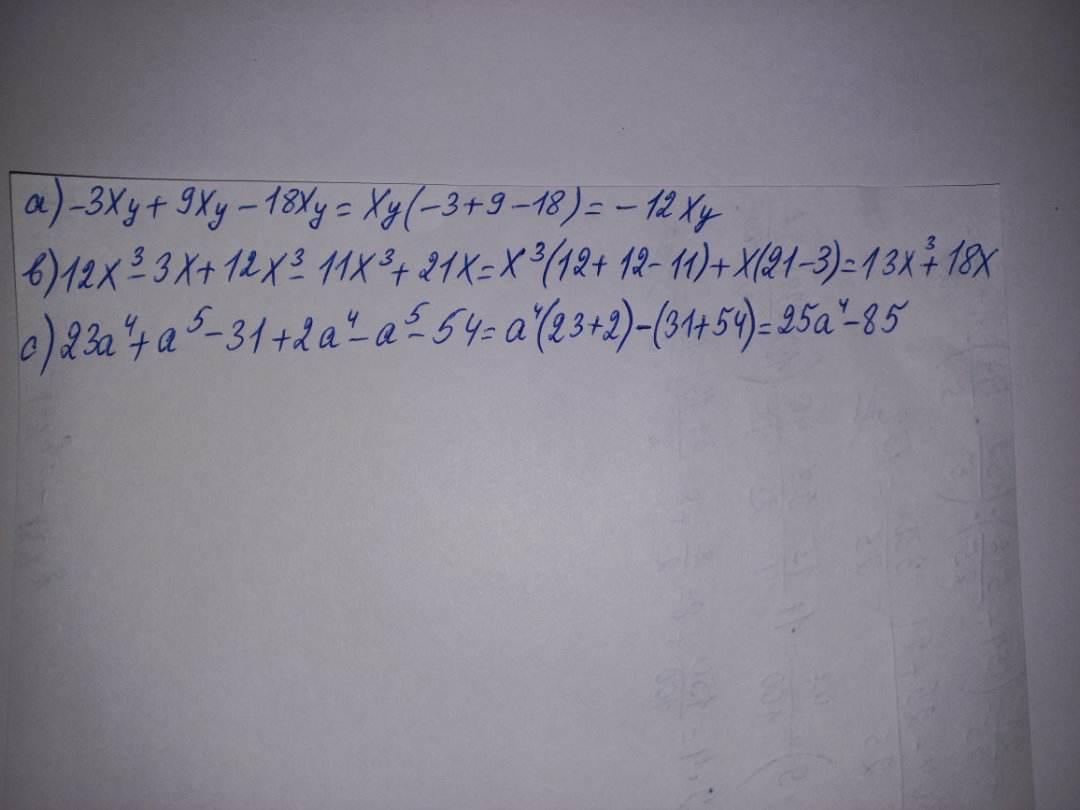 а) -3xy + 9xy - 18xy = xy(-3+9-18) = -12xy
в) 12x³ - 3x + 12x³ - 11x³ + 21x = x³(12+12-11) + x(21-3) = 13x³ + 18x
с) 23a⁴ + a⁵ - 31 + 2a⁴ - a⁵ - 54 = a⁴(23+2) - (31+54) = 25a⁴ - 85